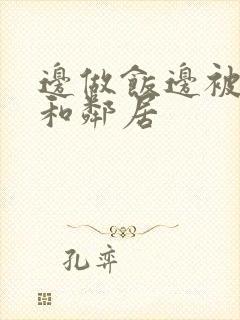 邊做飯邊被
和鄰居
孔弈